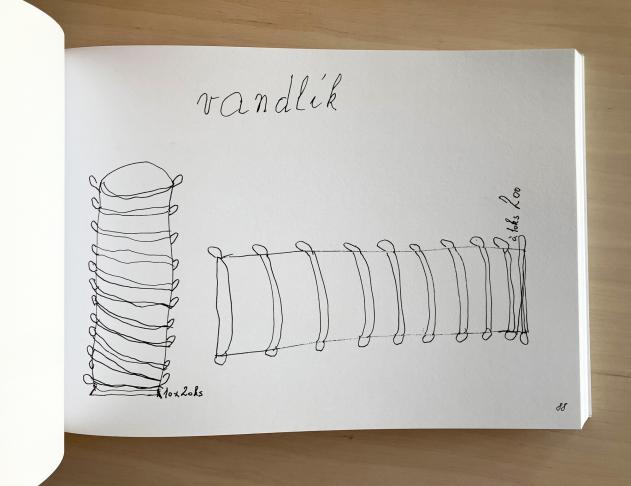 vandlík
à 10 x 20ks
à 1oks 200
88